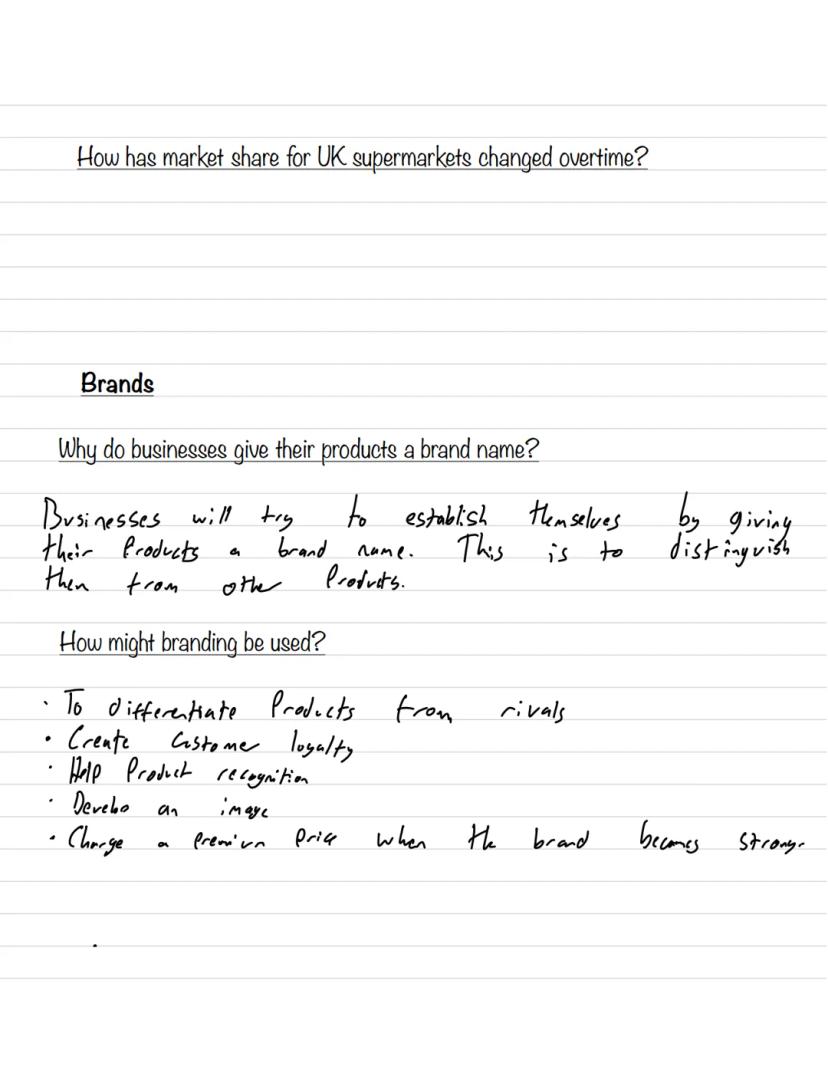 How has market share for UK supermarkets changed overtime?
Brands
Why do businesses give their products a brand name?
Businesses will try to establish themselves by giving
their Products a brand name. This is to distinguish
then from other Products.
How might branding be used?
· To differentiate Products from rivals
· Create Customer loyalty
· Help Product recognition
· Develo an image
· Charge a Premium Price when the brand becomes strong.